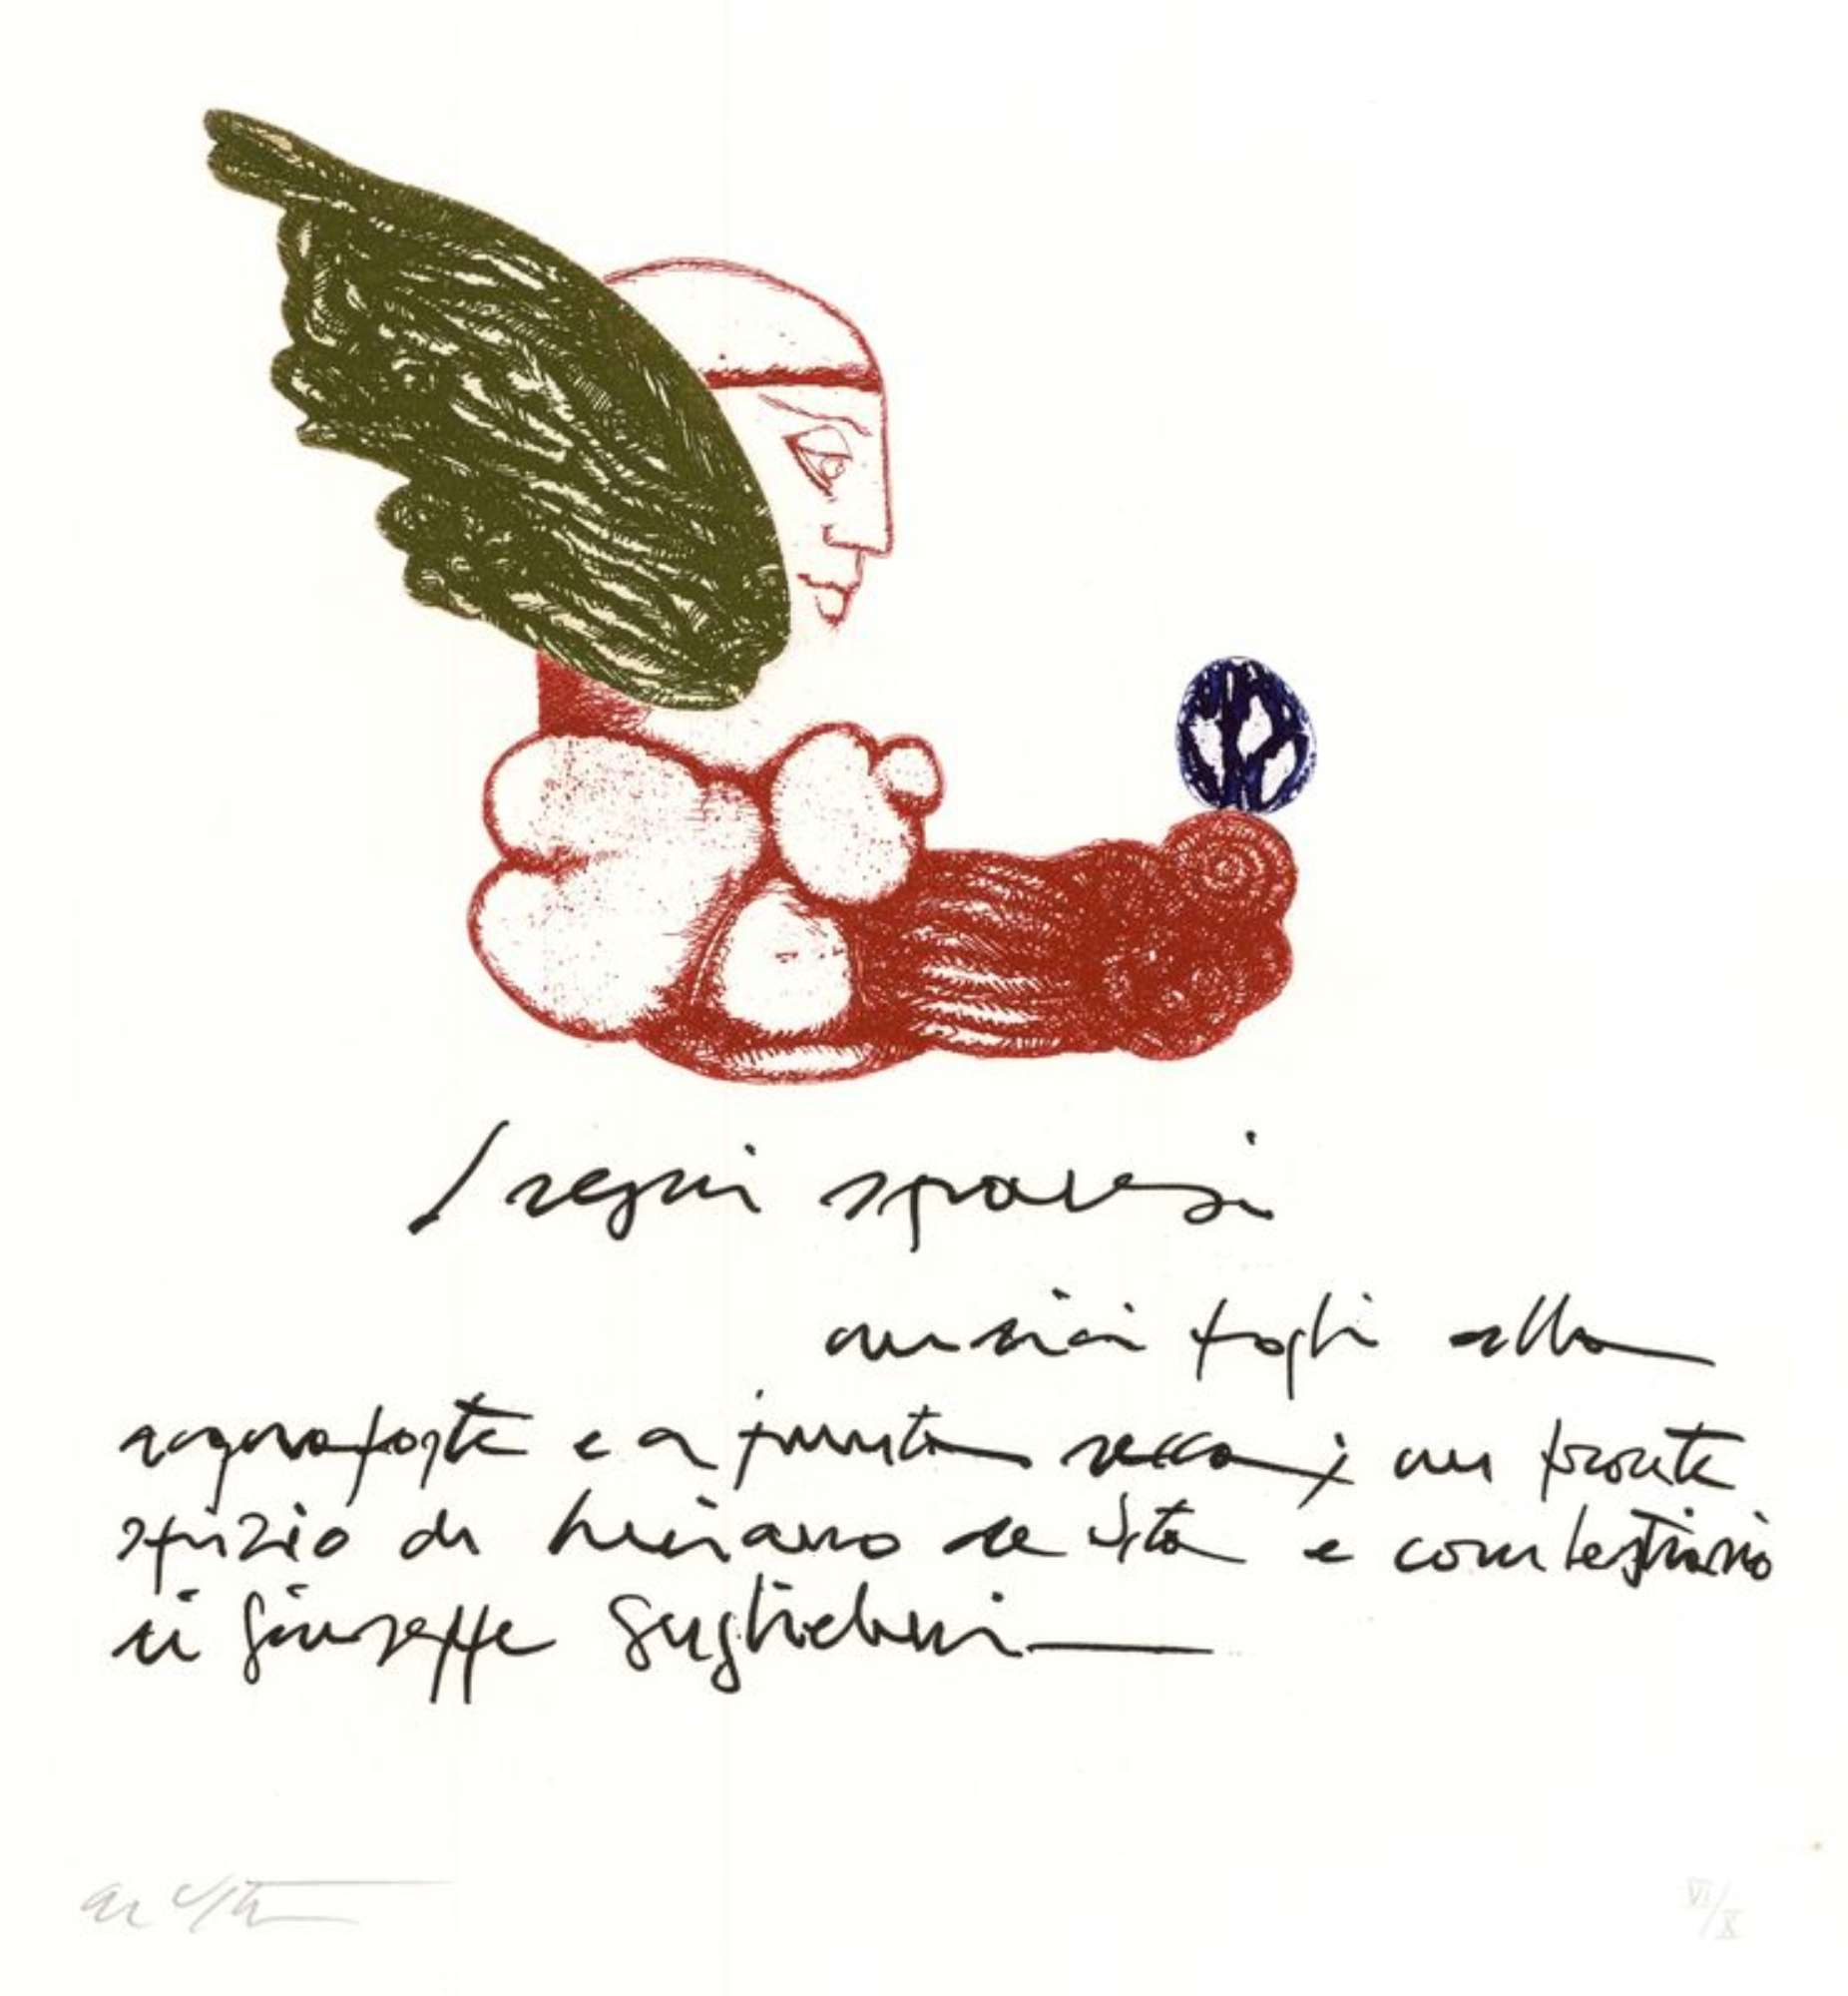 I segni sparsi
undici fogli alla
acquaforte e a punta secca, un fronte
spizio di Luciano De Vita e
di Giuseppe Guglielmi
De Vita
VI/X